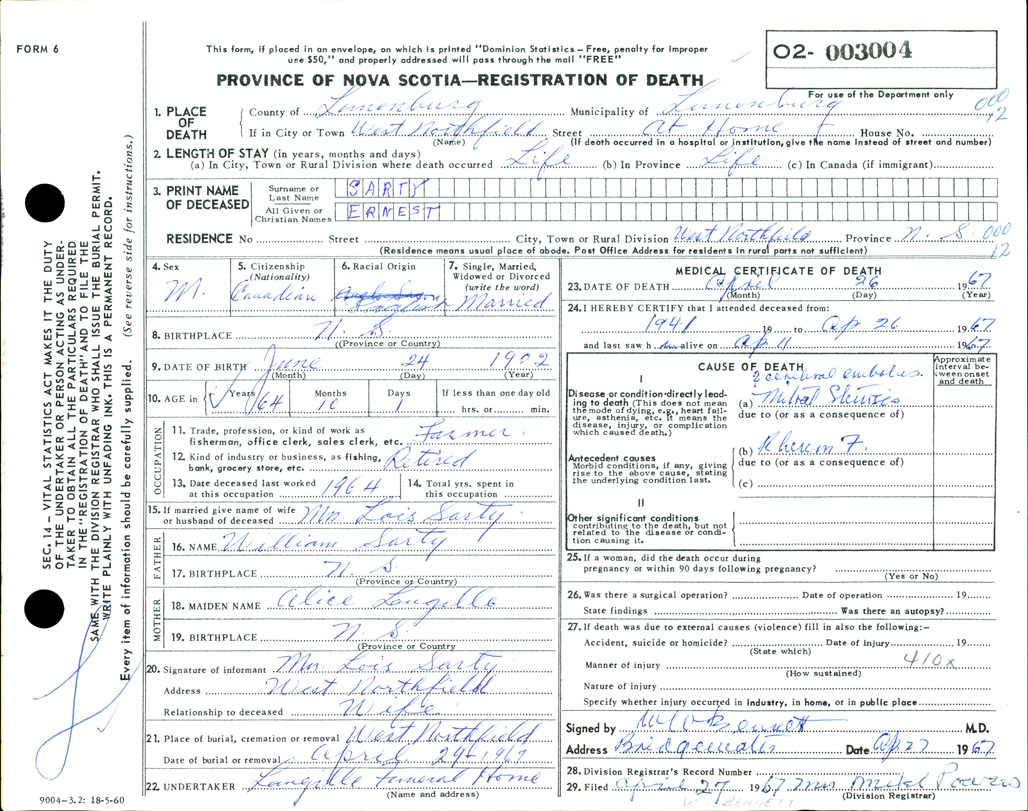 FORM 6
This form, if placed in an envelope, on which is printed "Dominion Statistics – Free, penalty for improper
use $50," and properly addressed will pass through the mail "FREE"
PROVINCE OF NOVA SCOTIA—REGISTRATION OF DEATH
O2- 003004
For use of the Department only
000
12
1. PLACE OF DEATH
County of Lunenburg Municipality of Lunenburg
If in City or Town West Northfield Street At Home House No.
(Name) (If death occurred in a hospital or institution, give the name instead of street and number)
2. LENGTH OF STAY (in years, months and days)
(a) In City, Town or Rural Division where death occurred Life (b) In Province Life (c) In Canada (if immigrant)
3. PRINT NAME OF DECEASED
Surname or Last Name SARTY
All Given or Christian Names ERNEST
RESIDENCE No Street City, Town or Rural Division West Northfield Province N. S.
000
12
(Residence means usual place of abode. Post Office Address for residents in rural parts not sufficient)
4. Sex M.
5. Citizenship (Nationality) Canadian
6. Racial Origin Anglo Saxon English
7. Single, Married, Widowed or Divorced (write the word) Married
8. BIRTHPLACE N. S.
(Province or Country)
9. DATE OF BIRTH June 24 1902
(Month) (Day) (Year)
10. AGE in Years 64 Months 10 Days 1 If less than one day old
hrs. or min.
OCCUPATION
11. Trade, profession, or kind of work as
fisherman, office clerk, sales clerk, etc. Farmer.
12. Kind of industry or business, as fishing,
bank, grocery store, etc. Retired
13. Date deceased last worked
at this occupation 1964
14. Total yrs. spent in
this occupation
15. If married give name of wife
or husband of deceased Mrs Lois Sarty
FATHER
16. NAME William Sarty
17. BIRTHPLACE N. S.
(Province or Country)
MOTHER
18. MAIDEN NAME Alice Langille
19. BIRTHPLACE N. S.
(Province or Country)
20. Signature of informant Mrs Lois Sarty
Address West Northfield
Relationship to deceased Wife
21. Place of burial, cremation or removal West Northfield
Date of burial or removal April 29-1967
22. UNDERTAKER Langille Funeral Home
(Name and address)
MEDICAL CERTIFICATE OF DEATH
23. DATE OF DEATH April 26 1967
(Month) (Day) (Year)
24. I HEREBY CERTIFY that I attended deceased from:
1941 19 to Ap 26 1967
and last saw h im alive on Ap 11 1967
CAUSE OF DEATH
Approximate interval between onset and death
I
2 cerebral embolus.
Disease or condition directly leading to death (This does not mean
the mode of dying, e.g., heart failure, asthenia, etc. It means the
disease, injury, or complication
which caused death.)
(a) Mitral Stenosis
due to (or as a consequence of)
(b) Rheum F.
due to (or as a consequence of)
(c)
Antecedent causes
Morbid conditions, if any, giving
rise to the above cause, stating
the underlying condition last.
II
Other significant conditions
contributing to the death, but not
related to the disease or condition causing it.
25. If a woman, did the death occur during
pregnancy or within 90 days following pregnancy?
(Yes or No)
26. Was there a surgical operation? Date of operation 19
State findings Was there an autopsy?
27. If death was due to external causes (violence) fill in also the following:–
Accident, suicide or homicide? Date of injury 19
(State which)
Manner of injury 410x
(How sustained)
Nature of injury
Specify whether injury occurred in industry, in home, or in public place
Signed by Bennett M.D.
Address Bridgewater Date Ap 27 1967
28. Division Registrar's Record Number
29. Filed April 27 1967 Mrs Powers
(Division Registrar)
W. BENNETT
SEC. 14 – VITAL STATISTICS ACT MAKES IT THE DUTY
OF THE UNDERTAKER OR PERSON ACTING AS UNDERTAKER TO OBTAIN ALL THE PARTICULARS REQUIRED
IN THE "REGISTRATION OF DEATH" AND TO FILE THE
SAME WITH THE DIVISION REGISTRAR WHO SHALL ISSUE THE BURIAL PERMIT.
WRITE PLAINLY WITH UNFADING INK. THIS IS A PERMANENT RECORD.
Every item of information should be carefully supplied. (See reverse side for instructions.)
9004-3.2: 18-5-60